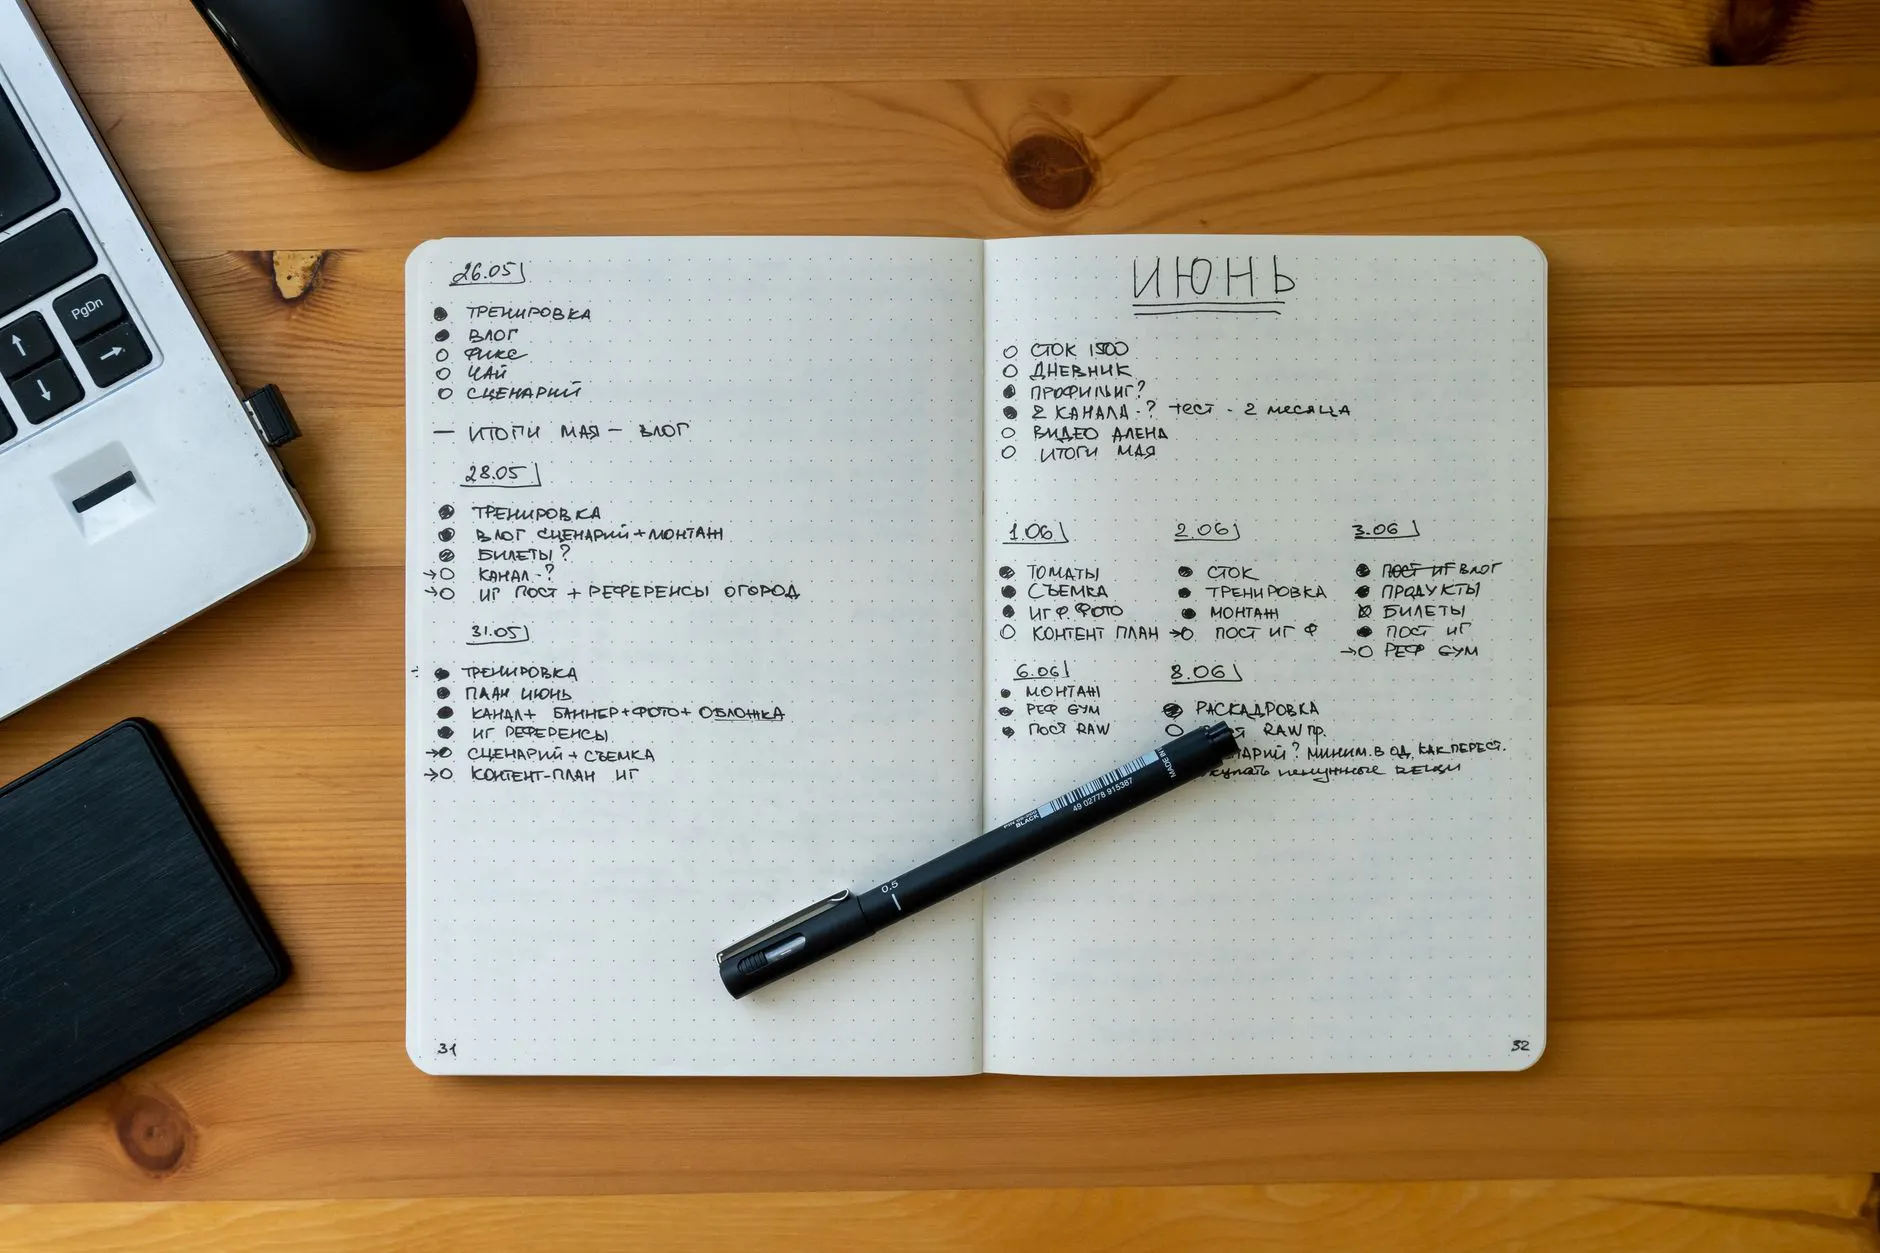 PgDn
26.05
ТРЕНИРОВКА
ВЛОГ
ФИКС
ЧАЙ
СЦЕНАРИЙ
— ИТОГИ МАЯ — ВЛОГ
28.05
ТРЕНИРОВКА
ВЛОГ СЦЕНАРИЙ + МОНТАЖ
БИЛЕТЫ?
→ КАНАЛ - ?
→ ИГ ПОСТ + РЕФЕРЕНСЫ ОГОРОД
31.05
ТРЕНИРОВКА
ПЛАН ИЮНЬ
КАНАЛ + БАННЕР + ФОТО + ОБЛОЖКА
ИГ РЕФЕРЕНСЫ
→ СЦЕНАРИЙ + СЪЕМКА
→ КОНТЕНТ-ПЛАН ИГ
31
ИЮНЬ
СТОК 1500
ДНЕВНИК
ПРОФИЛЬ ИГ?
2 КАНАЛА - ? тест - 2 месяца
ВИДЕО АЛЕНА
ИТОГИ МАЯ
1.06
ТОМАТЫ
СЪЕМКА
ИГ Ф ФОТО
КОНТЕНТ ПЛАН
2.06
СТОК
ТРЕНИРОВКА
МОНТАЖ
→ ПОСТ ИГ Ф
3.06
ПОСТ ИГ ВЛОГ
ПРОДУКТЫ
БИЛЕТЫ
ПОСТ ИГ
→ РЕФ GYM
6.06
МОНТАЖ
РЕФ GYM
ПОСТ RAW
8.06
РАСКАДРОВКА
RAW ПР.
? МИНИМ. В ОД. КАК ПЕРЕСТ.
ненужные вещи
32
MADE IN
49 02778 915387
BLACK
0.5